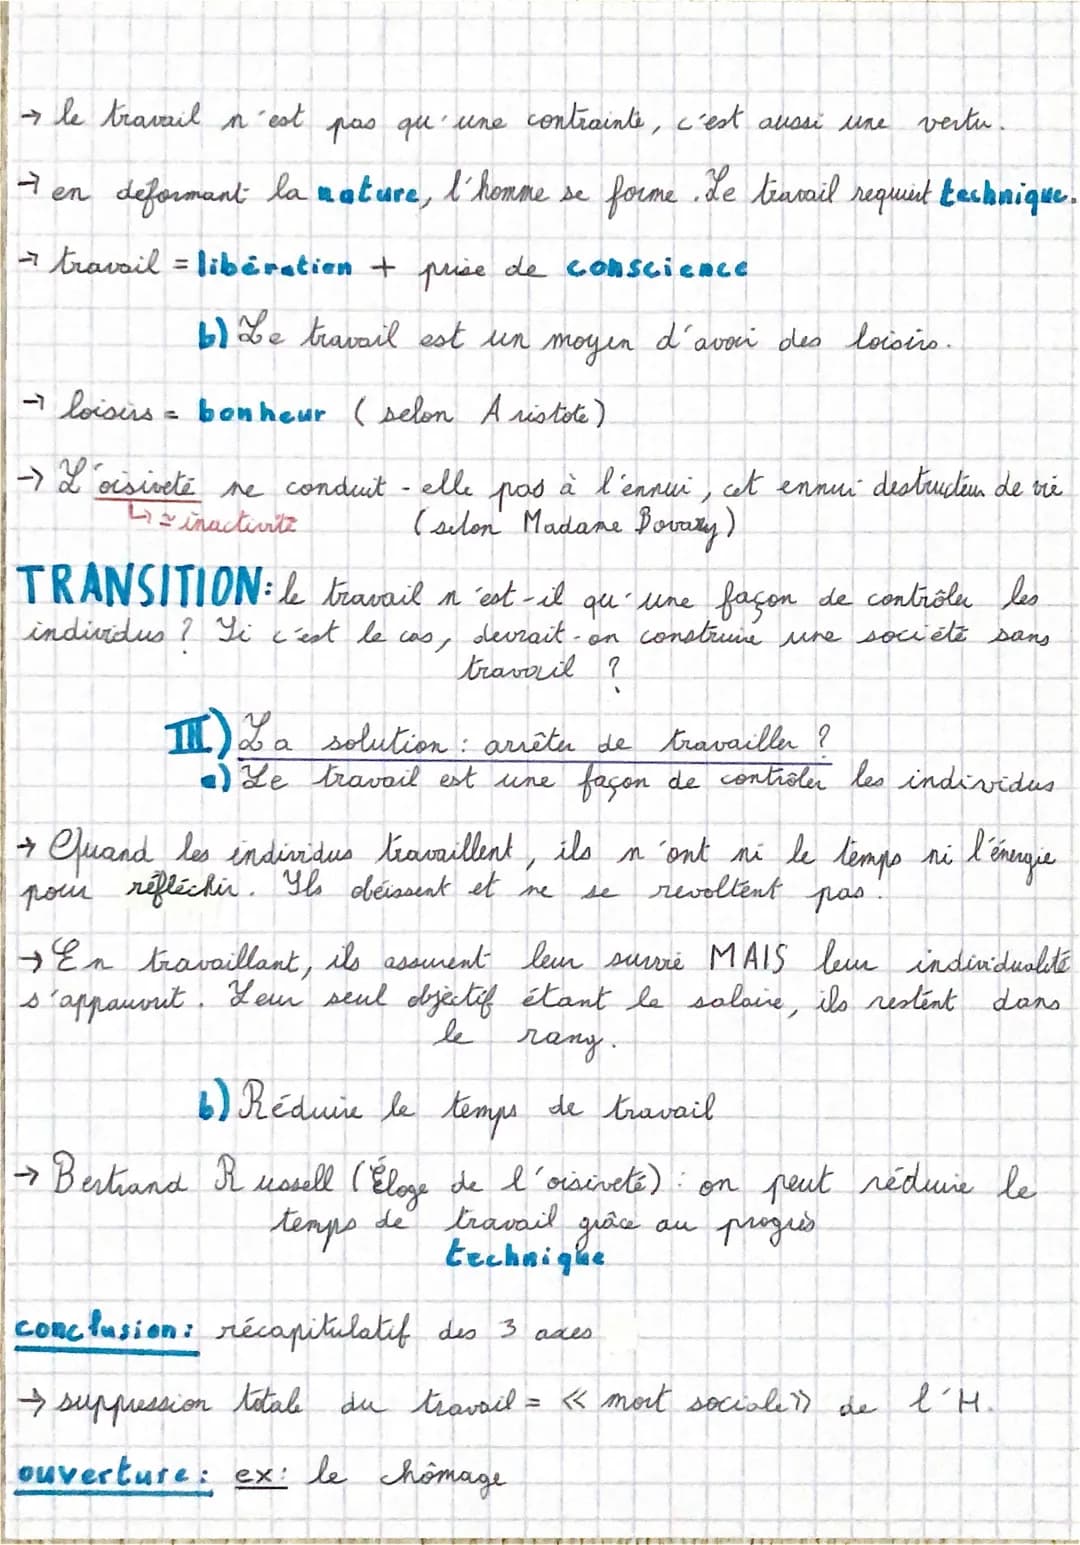 → le travail n'est pas qu'une contrainte, c'est aussi une vertu.
→ en déformant la nature, l'homme se forme. Le travail requiert technique.
→ travail = libération + prise de conscience
b) Le travail est un moyen d'avoir des loisirs.
→ loisirs = bonheur (selon Aristote)
→ L'oisiveté ne conduit-elle pas à l'ennui, cet ennui destructeur de vie
↳ ≃ inactivité (selon Madame Bovary)
TRANSITION: le travail n'est-il qu'une façon de contrôler les
individus ? Si c'est le cas, devrait-on construire une société sans
travail ?
III) La solution : arrêter de travailler ?
a) Le travail est une façon de contrôler les individus
→ Quand les individus travaillent, ils n'ont ni le temps ni l'énergie
pour réfléchir. Ils obéissent et ne se revoltent pas.
→ En travaillant, ils assurent leur survie MAIS leur individualité
s'appauvrit. Leur seul objectif étant le salaire, ils restent dans
le rang.
b) Réduire le temps de travail
→ Bertrand Russell (Éloge de l'oisiveté) : on peut réduire le
temps de travail grâce au progrès
technique
conclusion: récapitulatif des 3 axes
→ suppression totale du travail = « mort sociale » de l'H.
ouverture: ex: le chômage